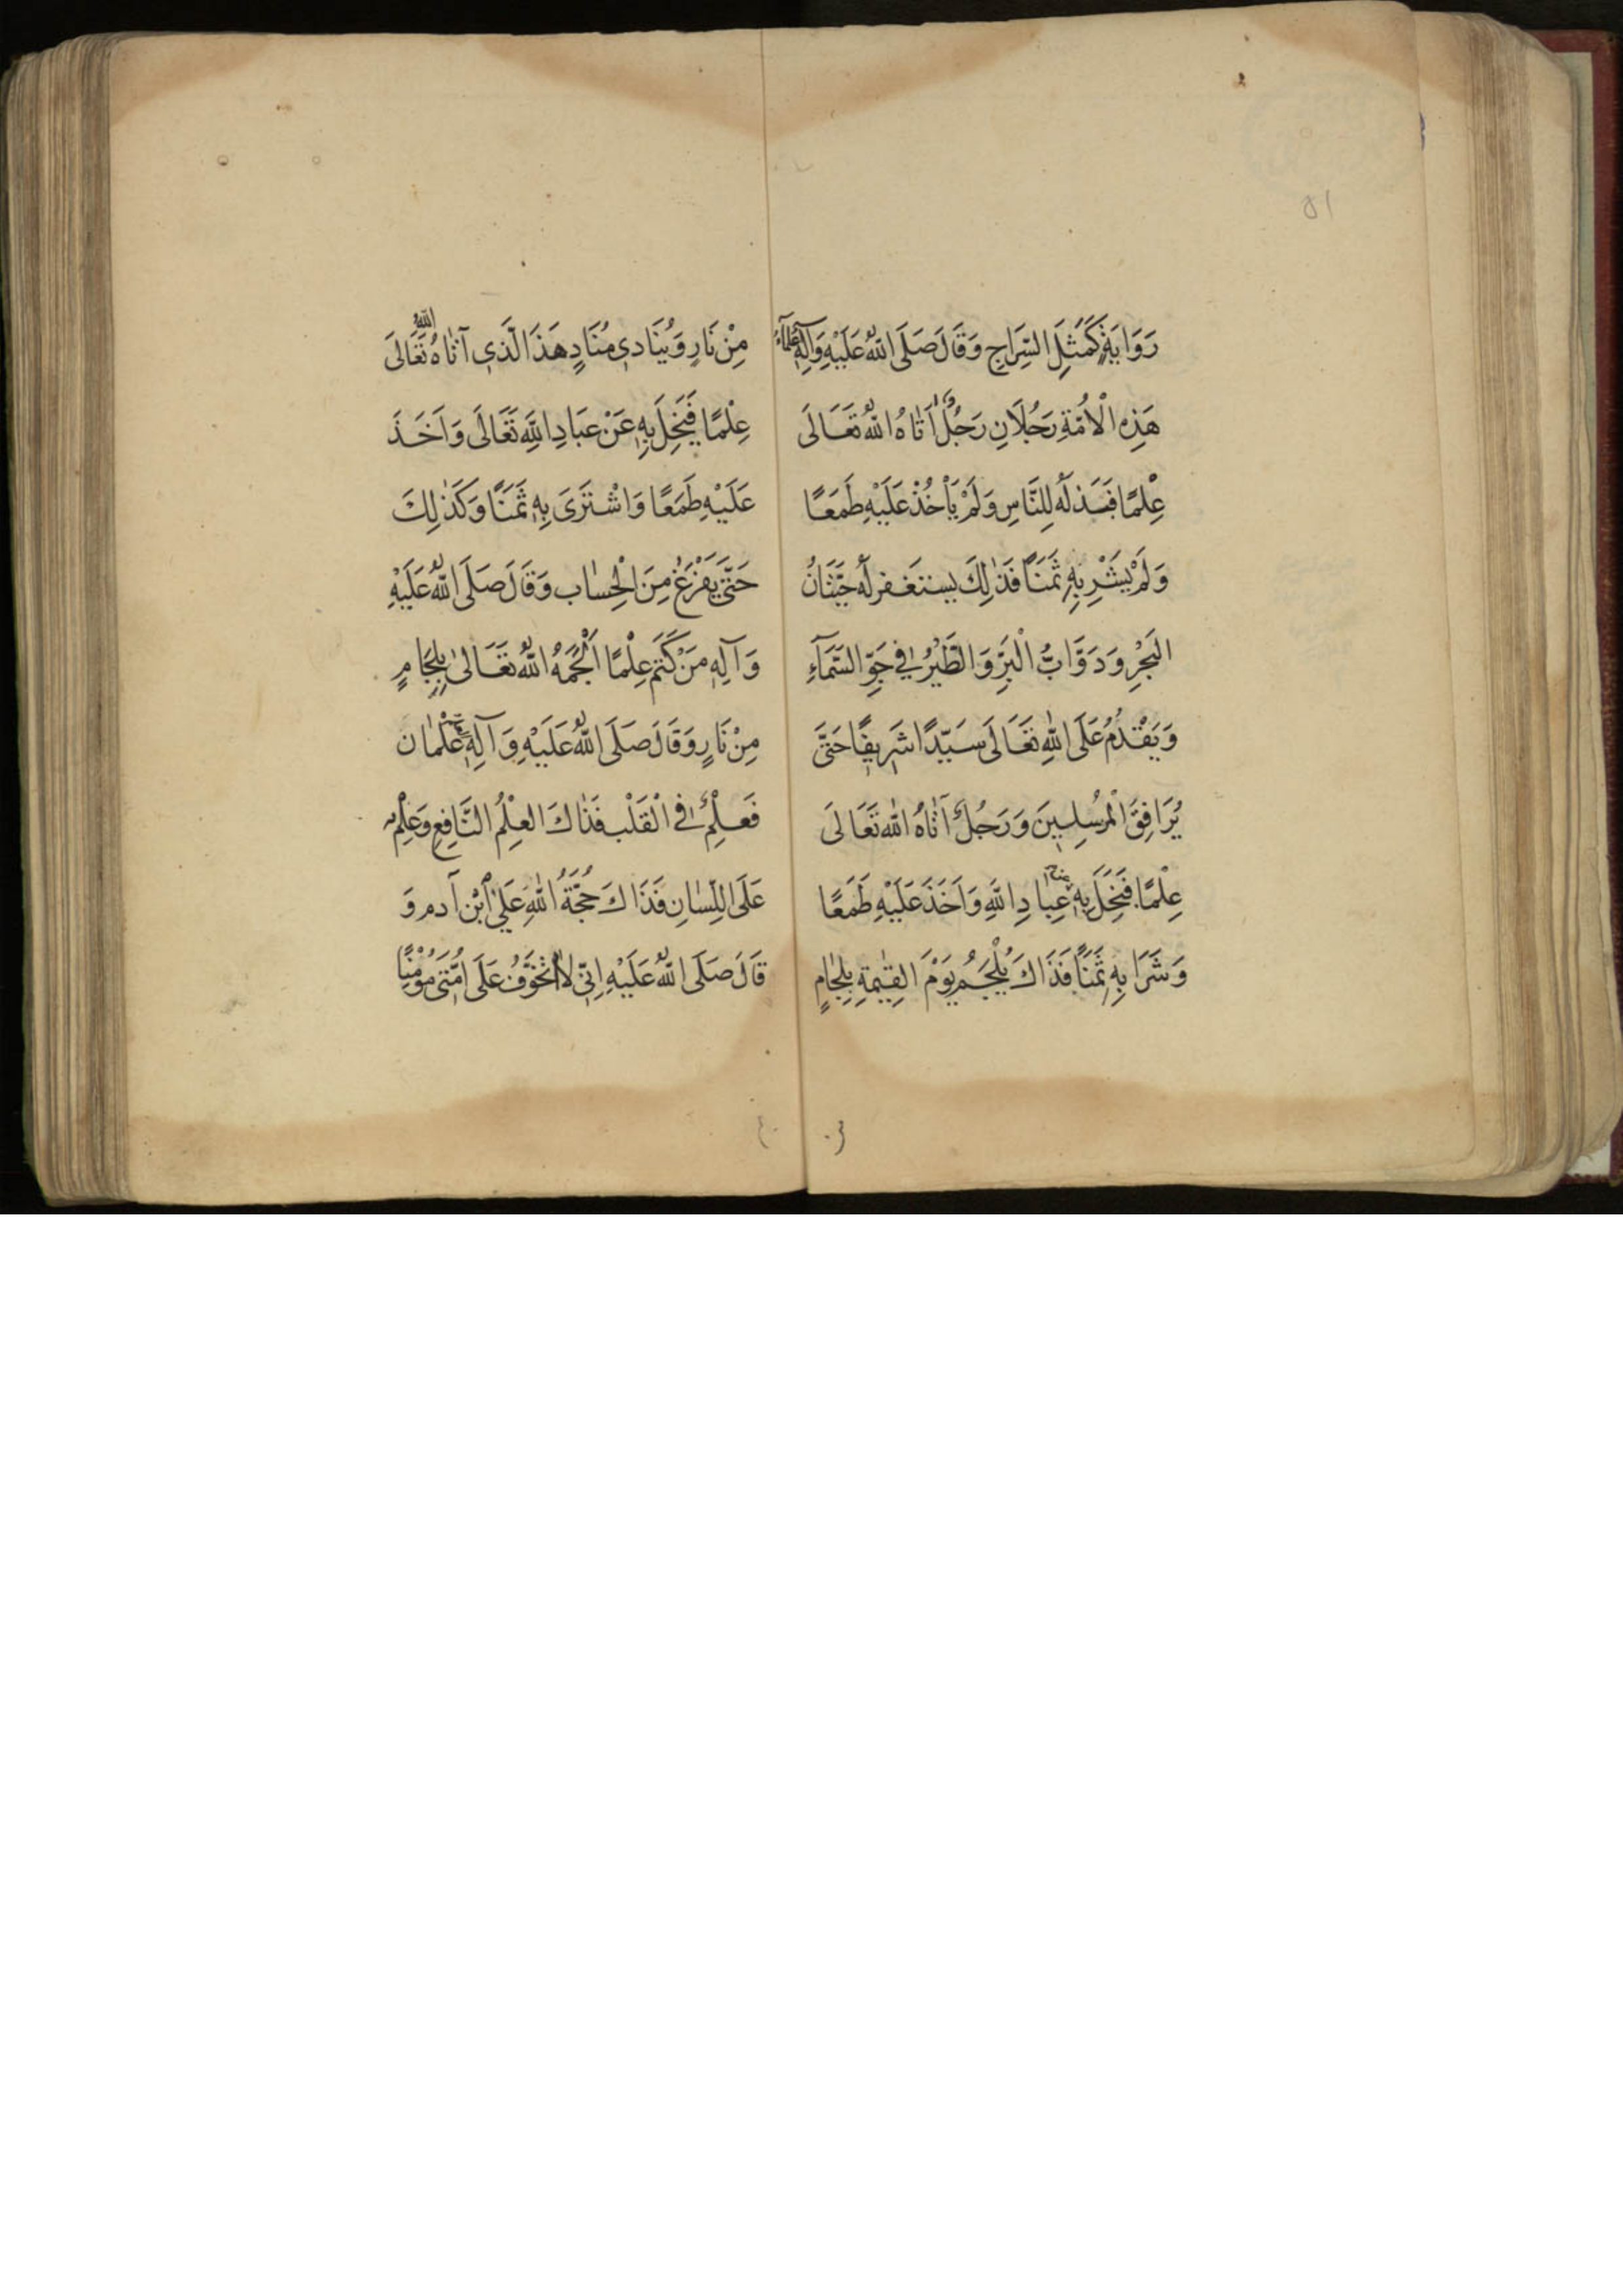 رَوَايَةٍ كَمَثَلِ السِّرَاجِ وَقَالَ صَلَى اللهُ عَلَيْهِ وَآلِهِ عُلَمَاءُ
هَذِهِ الْأُمَّةِ رَجُلَانِ رَجُلٌ آتَاهُ اللهُ تَعَالَى
عِلْمًا فَبَذَلَهُ لِلنَّاسِ وَلَمْ يَأْخُذْ عَلَيْهِ طَمَعًا
وَلَمْ يَشْرِ بِهِ ثَمَنًا فَذَلِكَ يستغفر لَهُ حِيتَانُ
البَحْرِ وَدَوَّابُّ الْبَرِّ وَالطَّيْرُ فِي جَوِّ السَّمَآءِ
وَيَقْدُمُ عَلَى اللهِ تَعَالَى سَيِّدًا شَرِيفًا حَتَّى
يُرَافِقَ الْمُرسَلِينَ وَرَجُلٌ آتَاهُ الله تَعَالَى
عِلْمًا فَبَخِلَ بِهِ عِبَادِ اللَّهِ وَاَخَذَ عَلَيْهِ طَمَعًا
وَشَرَا بِهِ ثَمَنًا فَذَاكَ يُلْجَمُ يَوْمَ القِيٰمَةِ بِلِجَامٍ
مِنْ نَارٍ وَيُنَادِي مُنَادٍ هَذَا الَّذِي آتَاهُ اللهُ تَعَالَى
عِلْمًا فَبَخِلَ بِهِ عَنْ عِبَادِ اللَّهِ تَعَالَى وَاَخَذَ
عَلَيْهِ طَمَعًا وَاشْتَرَى بِهِ ثَمَنًا وَكَذَلِكَ
حَتَّى يَفْرَغَ مِنَ الْحِسَاب وَقَالَ صَلَى اللهُ عَلَيْهِ
وَآلِهِ مَنْ كَتَمَ عِلْمًا اَلْجَمَهُ اللهُ تَعَالَى بِلِجَامٍ
مِنْ نَارٍ وَقَالَ صَلَى اللهُ عَلَيْهِ وَآلِهِ عِلْمَان
فَعِلْمٌ فِي الْقَلْب فَذَاكَ العِلْمُ النَّافِعِ وَعِلْمٌ
عَلَى اللِّسَانِ فَذَاكَ حُجَّةُ اللهِ عَلَى ابْن آدم وَ
قَالَ صَلَى اللهُ عَلَيْهِ اِنِّي لَا اَتَخَوَّفُ عَلَى اُمَّتِي مُؤْمِنًا